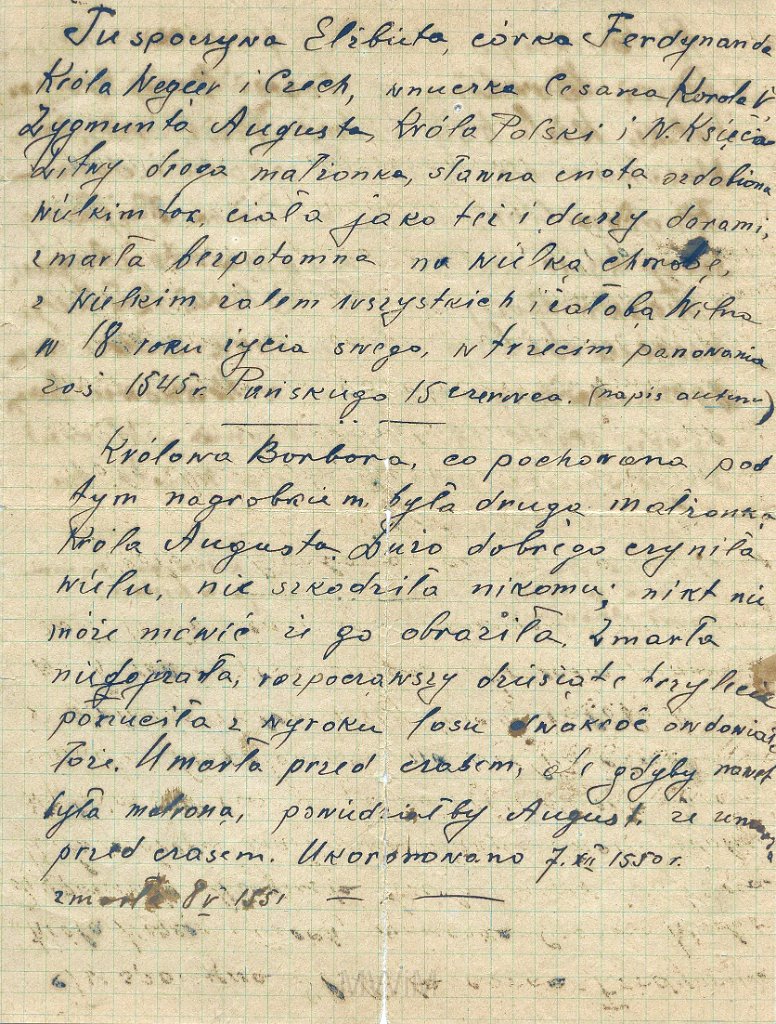 Tu spoczywa Elżbieta, córka Ferdynanda
Króla Węgier i Czech, wnuczka Cesarza Karola V,
Zygmunta Augusta, Króla Polski i W. Księcia
Litwy droga małżonka, sławna cnotą ozdobiona
wielkim tak, ciała jako też i duszy darami,
zmarła bezpotomna na wielką chorobę,
z wielkim żalem wszystkich i żałobą Wilna
w 18 roku życia swego, w trzecim panowania
zaś 1545 r. Pańskiego 15 czerwca. (napis autent)
Królowa Barbara, co pochowana pod
tym nagrobkiem, była drugą małżonką
Króla Augusta. Dużo dobrego czyniła
wielu, nie szkodziła nikomu; nikt nie
może mówić że go obraziła. Zmarła
niedojrzała, rozpocząwszy dziesiąte trzylecie
porzuciła z wyroku losu dwakroć owdowiałe
łoże. Umarła przed czasem, ale gdyby nawet
była matroną, powiedziałby August, że umarła
przed czasem. Ukoronowano 7.XII 1550 r.
zmarła 8 V 1551